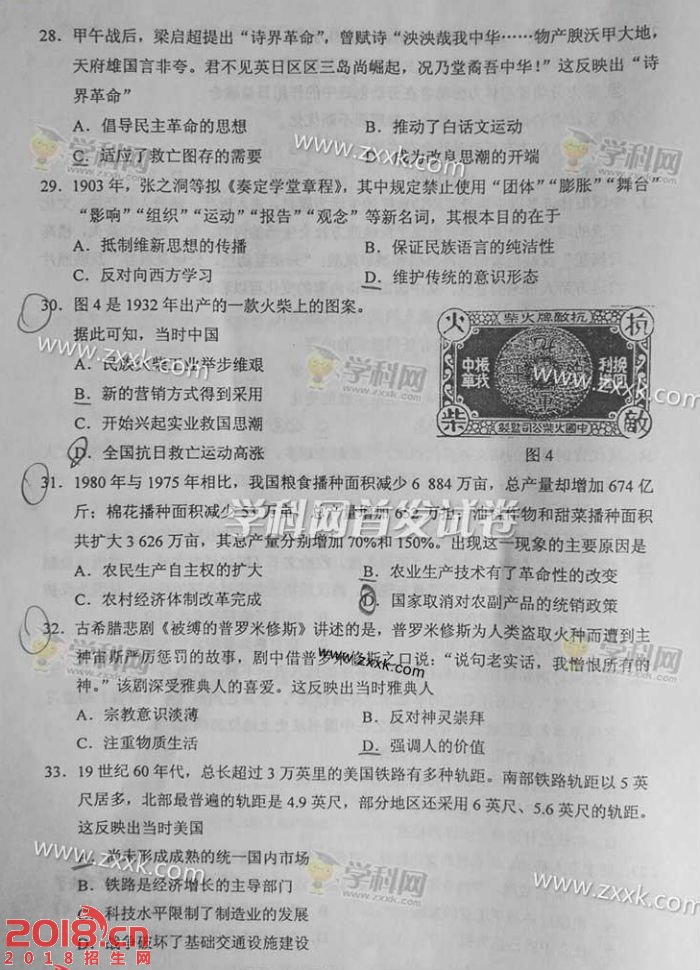 28. 甲午战后，梁启超提出“诗界革命”，曾赋诗“泱泱哉我中华……物产腴沃甲大地，
天府雄国言非夸。君不见英日区区三岛尚崛起，况乃堂矞吾中华！”这反映出“诗
界革命”
A. 倡导民主革命的思想 B. 推动了白话文运动
C. 适应了救亡图存的需要 D. 成为改良思潮的开端
29. 1903 年，张之洞等拟《奏定学堂章程》，其中规定禁止使用“团体”“膨胀”“舞台”
“影响”“组织”“运动”“报告”“观念”等新名词，其根本目的在于
A. 抵制维新思想的传播 B. 保证民族语言的纯洁性
C. 反对向西方学习 D. 维护传统的意识形态
30. 图 4 是 1932 年出产的一款火柴上的图案。
据此可知，当时中国
A. 民族火柴工业举步维艰
B. 新的营销方式得到采用
C. 开始兴起实业救国思潮
D. 全国抗日救亡运动高涨
火柴 抗敌
抗敌牌火柴
振我中华
挽回利权
中国火柴公司监制
图 4
31. 1980 年与 1975 年相比，我国粮食播种面积减少 6 884 万亩，总产量却增加 674 亿
斤；棉花播种面积减少 万亩，总产量增加 万担；油料作物和甜菜播种面积
共扩大 3 626 万亩，其总产量分别增加 70%和 150%。出现这一现象的主要原因是
A. 农民生产自主权的扩大 B. 农业生产技术有了革命性的改变
C. 农村经济体制改革完成 D. 国家取消对农副产品的统销政策
32. 古希腊悲剧《被缚的普罗米修斯》讲述的是，普罗米修斯为人类盗取火种而遭到主
神宙斯严厉惩罚的故事，剧中借普罗米修斯之口说：“说句老实话，我憎恨所有的
神。”该剧深受雅典人的喜爱。这反映出当时雅典人
A. 宗教意识淡薄 B. 反对神灵崇拜
C. 注重物质生活 D. 强调人的价值
33. 19 世纪 60 年代，总长超过 3 万英里的美国铁路有多种轨距。南部铁路轨距以 5 英
尺居多，北部最普遍的轨距是 4.9 英尺，部分地区还采用 6 英尺、5.6 英尺的轨距。
这反映出当时美国
A. 尚未形成成熟的统一国内市场
B. 铁路是经济增长的主导部门
C. 科技水平限制了制造业的发展
D. 战争破坏了基础交通设施建设
学科网
www.zxxk.com
学科网首发试卷
2018.cn
2018招生网